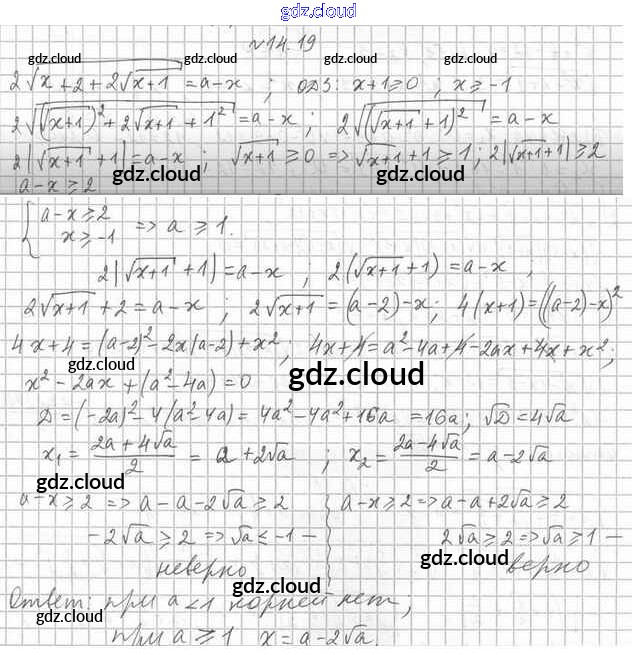 gdz.cloud
№14.19
gdz.cloud gdz.cloud
2√(x+2+2√(x+1)) = a-x ; ОДЗ: x+1≥0 ; x≥-1
2√((√(x+1))²+2√(x+1)+1²) = a-x ; 2√((√(x+1)+1)²) = a-x
2|√(x+1)+1| = a-x ; √(x+1) ≥ 0 => √(x+1)+1 ≥ 1 ; 2|√(x+1)+1| ≥ 2
gdz.cloud gdz.cloud
a-x ≥ 2
{ a-x ≥ 2
x ≥ -1 => a ≥ 1.
gdz.cloud
2|√(x+1)+1| = a-x ; 2(√(x+1)+1) = a-x ;
2√(x+1)+2 = a-x ; 2√(x+1) = (a-2)-x ; 4(x+1) = ((a-2)-x)²
4x+4 = (a-2)²-2x(a-2)+x² ; 4x+4 = a²-4a+4-2ax+4x+x² ;
gdz.cloud
x²-2ax+(a²-4a) = 0
gdz.cloud
D = (-2a)²-4(a²-4a) = 4a²-4a²+16a = 16a ; √D = 4√a
gdz.cloud
x₁ = (2a+4√a)/2 = a+2√a ; x₂ = (2a-4√a)/2 = a-2√a
gdz.cloud gdz.cloud
a-x ≥ 2 => a-a-2√a ≥ 2 a-x ≥ 2 => a-a+2√a ≥ 2
-2√a ≥ 2 => √a ≤ -1 — 2√a ≥ 2 => √a ≥ 1 —
gdz.cloud
неверно верно
gdz.cloud
Ответ: при a<1 корней нет,
gdz.cloud
при a ≥ 1 x = a-2√a.
gdz.cloud